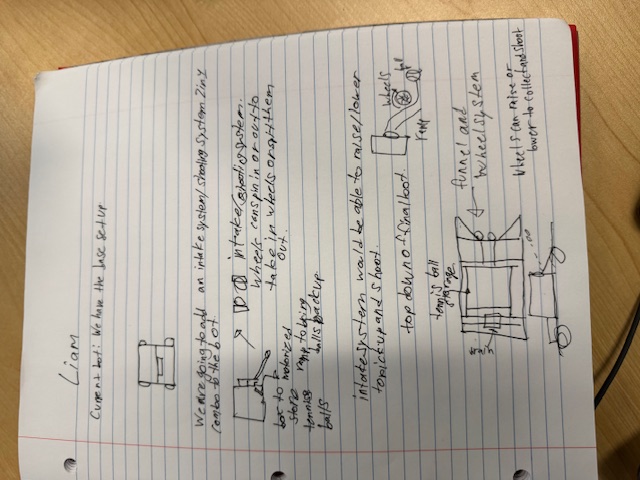 Liam
Current bot: We have the base set up
We are going to add an intake system/shooting system 2 in 1
combo to the bot.
intake/shooting system.
wheels can spin in or out to
take in wheels or spit them
out.
box to
store
tennis
balls
motorized
ramp to bring
balls back up
intake system would be able to raise/lower
to pick up and shoot.
wheels
ball
ramp
top down of final bot.
tennis ball
storage
funnel and
wheel system
wheels can raise or
lower to collect and shoot